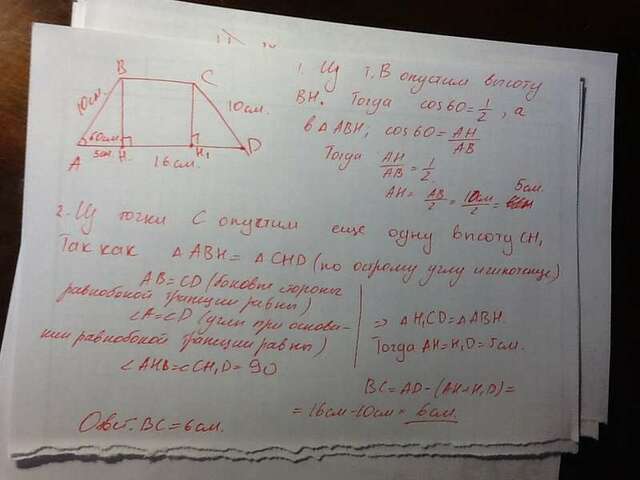 B
C
10см.
10см.
60см
5см.
H
H₁
A
16см.
D
1. Из т. B опустим высоту
BH. Тогда cos60=1/2, а
в △ABH; cos60=AH/AB
Тогда AH/AB=1/2
AH=AB/2=10см/2=5см.
2. Из точки C опустим еще одну высоту CH₁
Так как △ABH=△CHD (по острому углу и гипотенузе)
AB=CD (боковые стороны
равнобокой трапеции равны)
∠A=∠D (углы при основа-
нии равнобокой трапеции равны)
∠AHB=∠CH₁D=90
⇒ △H₁CD=△ABH.
Тогда AH=H₁D=5см.
BC=AD-(AH+H₁D)=
=16см-10см=6см.
Ответ: BC=6см.